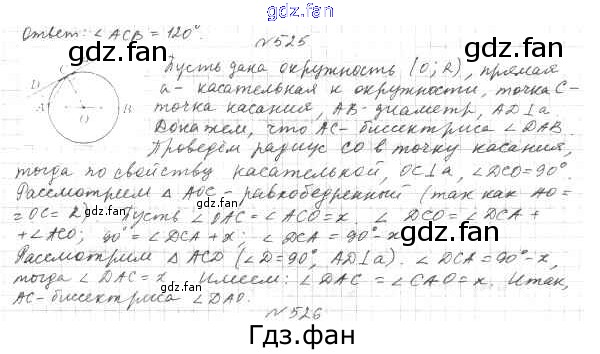 gdz.fan
Ответ: ∠ACB = 120°.
gdz.fan gdz.fan
N525
Пусть дана окружность (O; R), прямая
a - касательная к окружности, точка C -
точка касания, AB - диаметр, AD⊥a
Докажем, что AC - биссектриса ∠DAB.
Проведём радиус CO в точку касания,
D C A O B
тогда по свойству касательной, OC⊥a, ∠DCO=90°.
gdz.fan gdz.fan
Рассмотрим △ AOC - равнобедренный (так как AO=
=OC=R). Пусть ∠OAC=∠ACO=x. ∠DCO=∠DCA+
+∠ACO; 90°=∠DCA+x; ∠DCA=90°-x
gdz.fan gdz.fan
Рассмотрим △ ACD (∠D=90°, AD⊥a). ∠DCA=90°-x,
тогда ∠DAC=x. Имеем: ∠DAC=∠CAO=x. Итак,
AC - биссектриса ∠DAO.
gdz.fan gdz.fan
N526
Гдз.фан